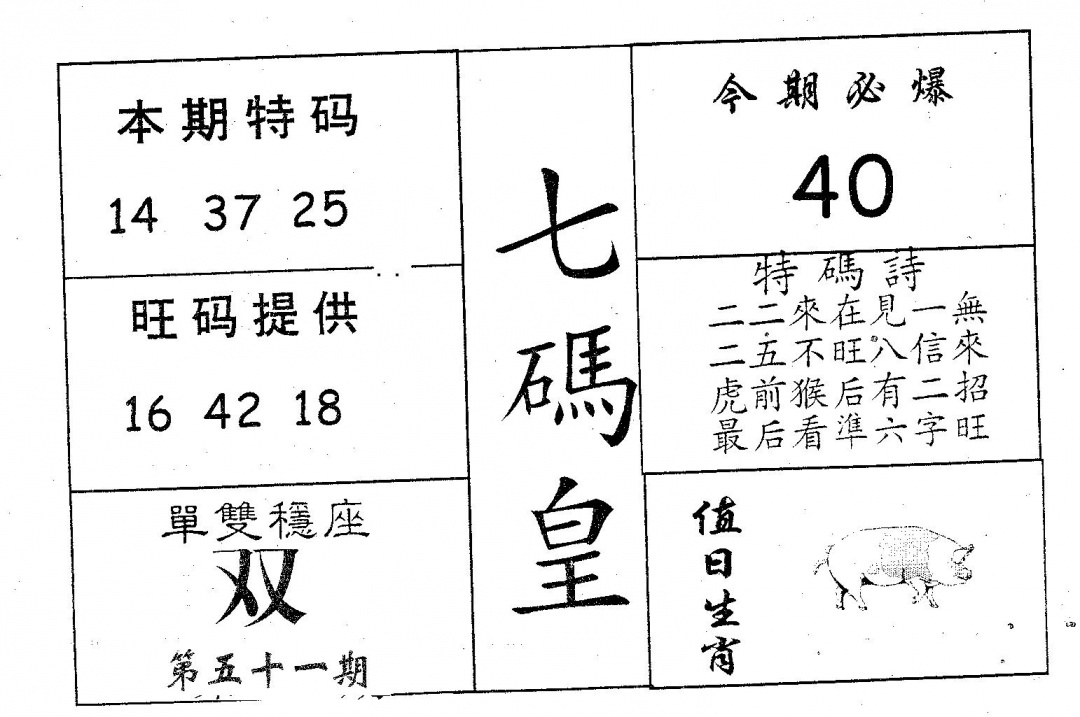 本期特码
14 37 25
旺码提供
16 42 18
單雙穩座
双
第五十一期
七碼皇
今期必爆
40
特碼詩
二二來在見一無
二五不旺八信來
虎前猴后有二招
最后看準六字旺
值日生肖